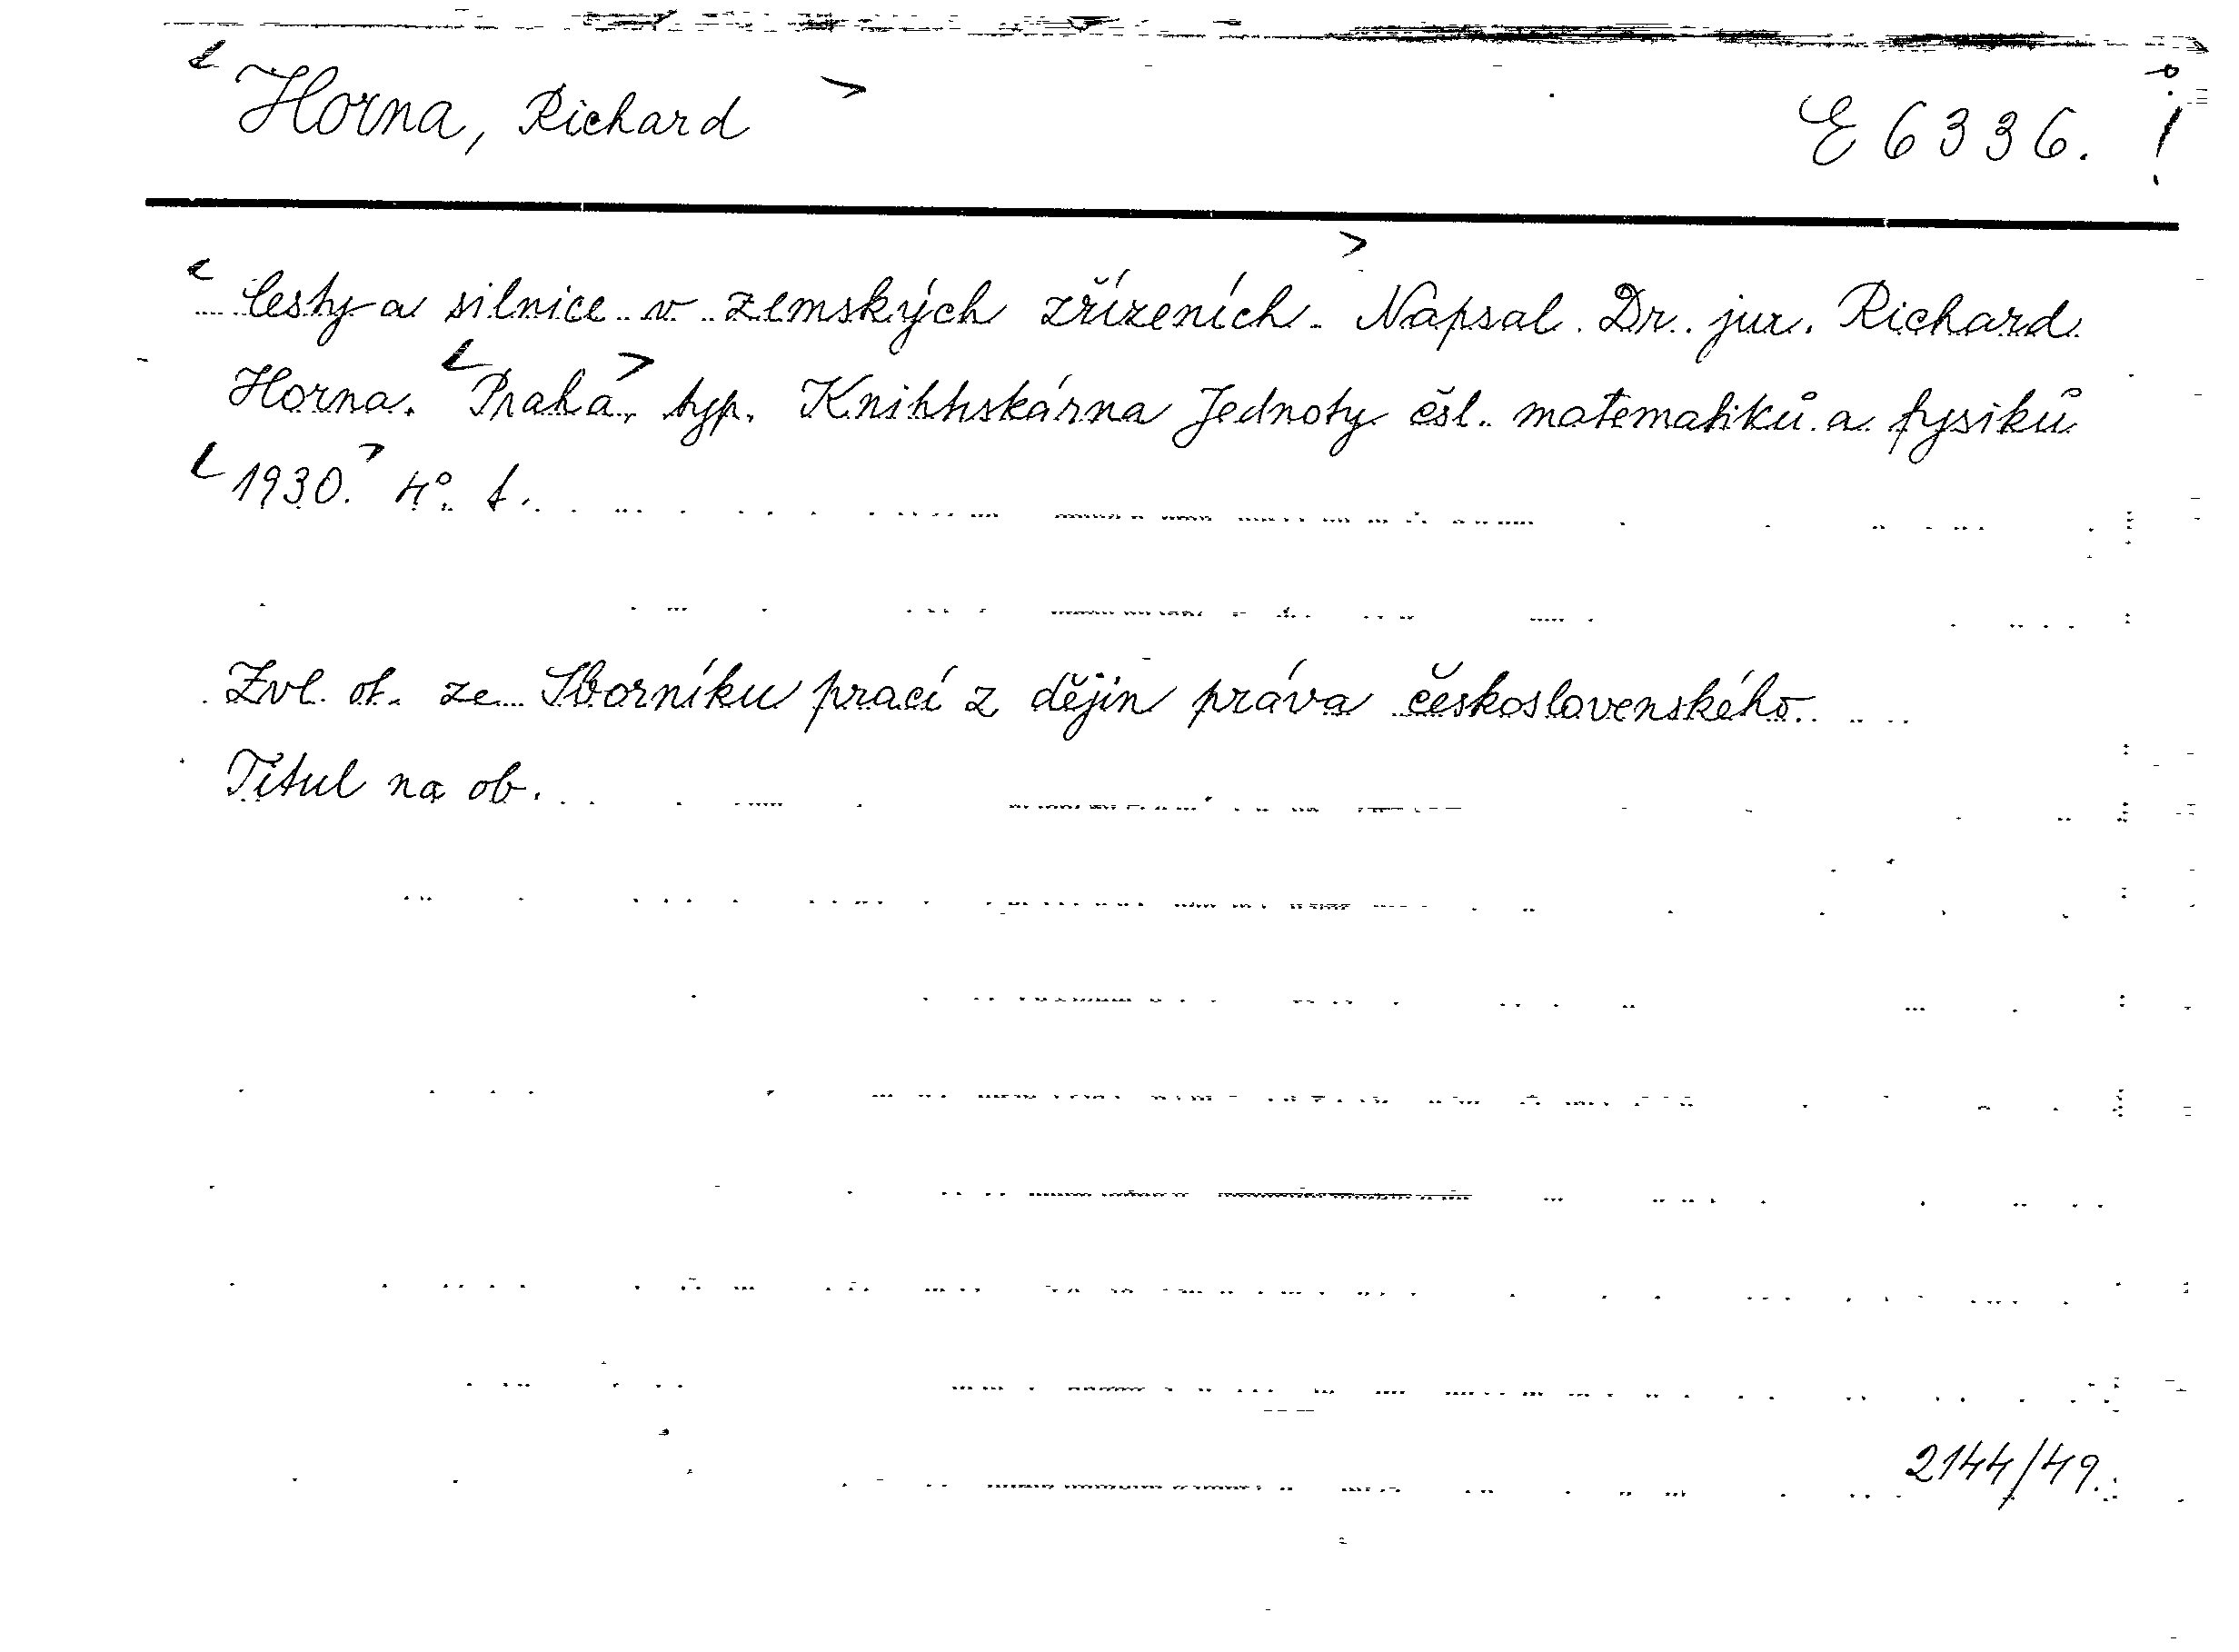 Horna, Richard
E 6336.
Cesty a silnice v zemských zřízeních. Napsal Dr. jur. Richard
Horna. Praha, typ. Knihtiskárna Jednoty čsl. matematiků a fysiků
1930. 4°.
Zvl. ot. ze Sborníku prací z dějin práva československého.
Titul na ob.
2144/49.